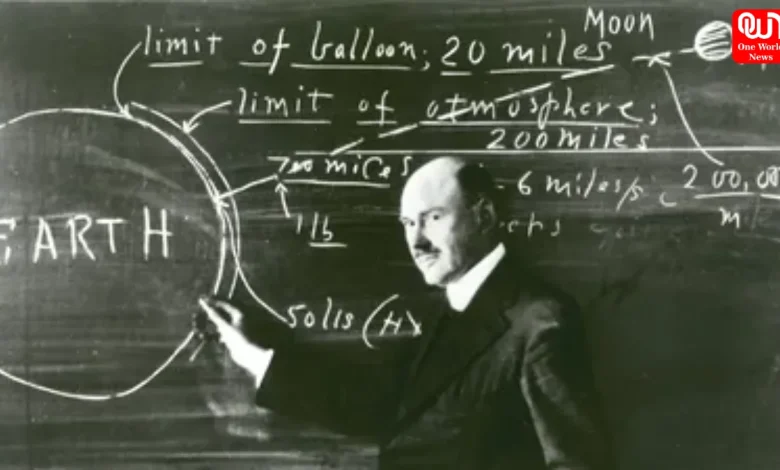 Moon
limit of balloon; 20 miles
limit of atmosphere;
200 miles
700 miles
6 miles/s
200,00
m
1 lb
EARTH
50 lbs (H)
OW
One World
News